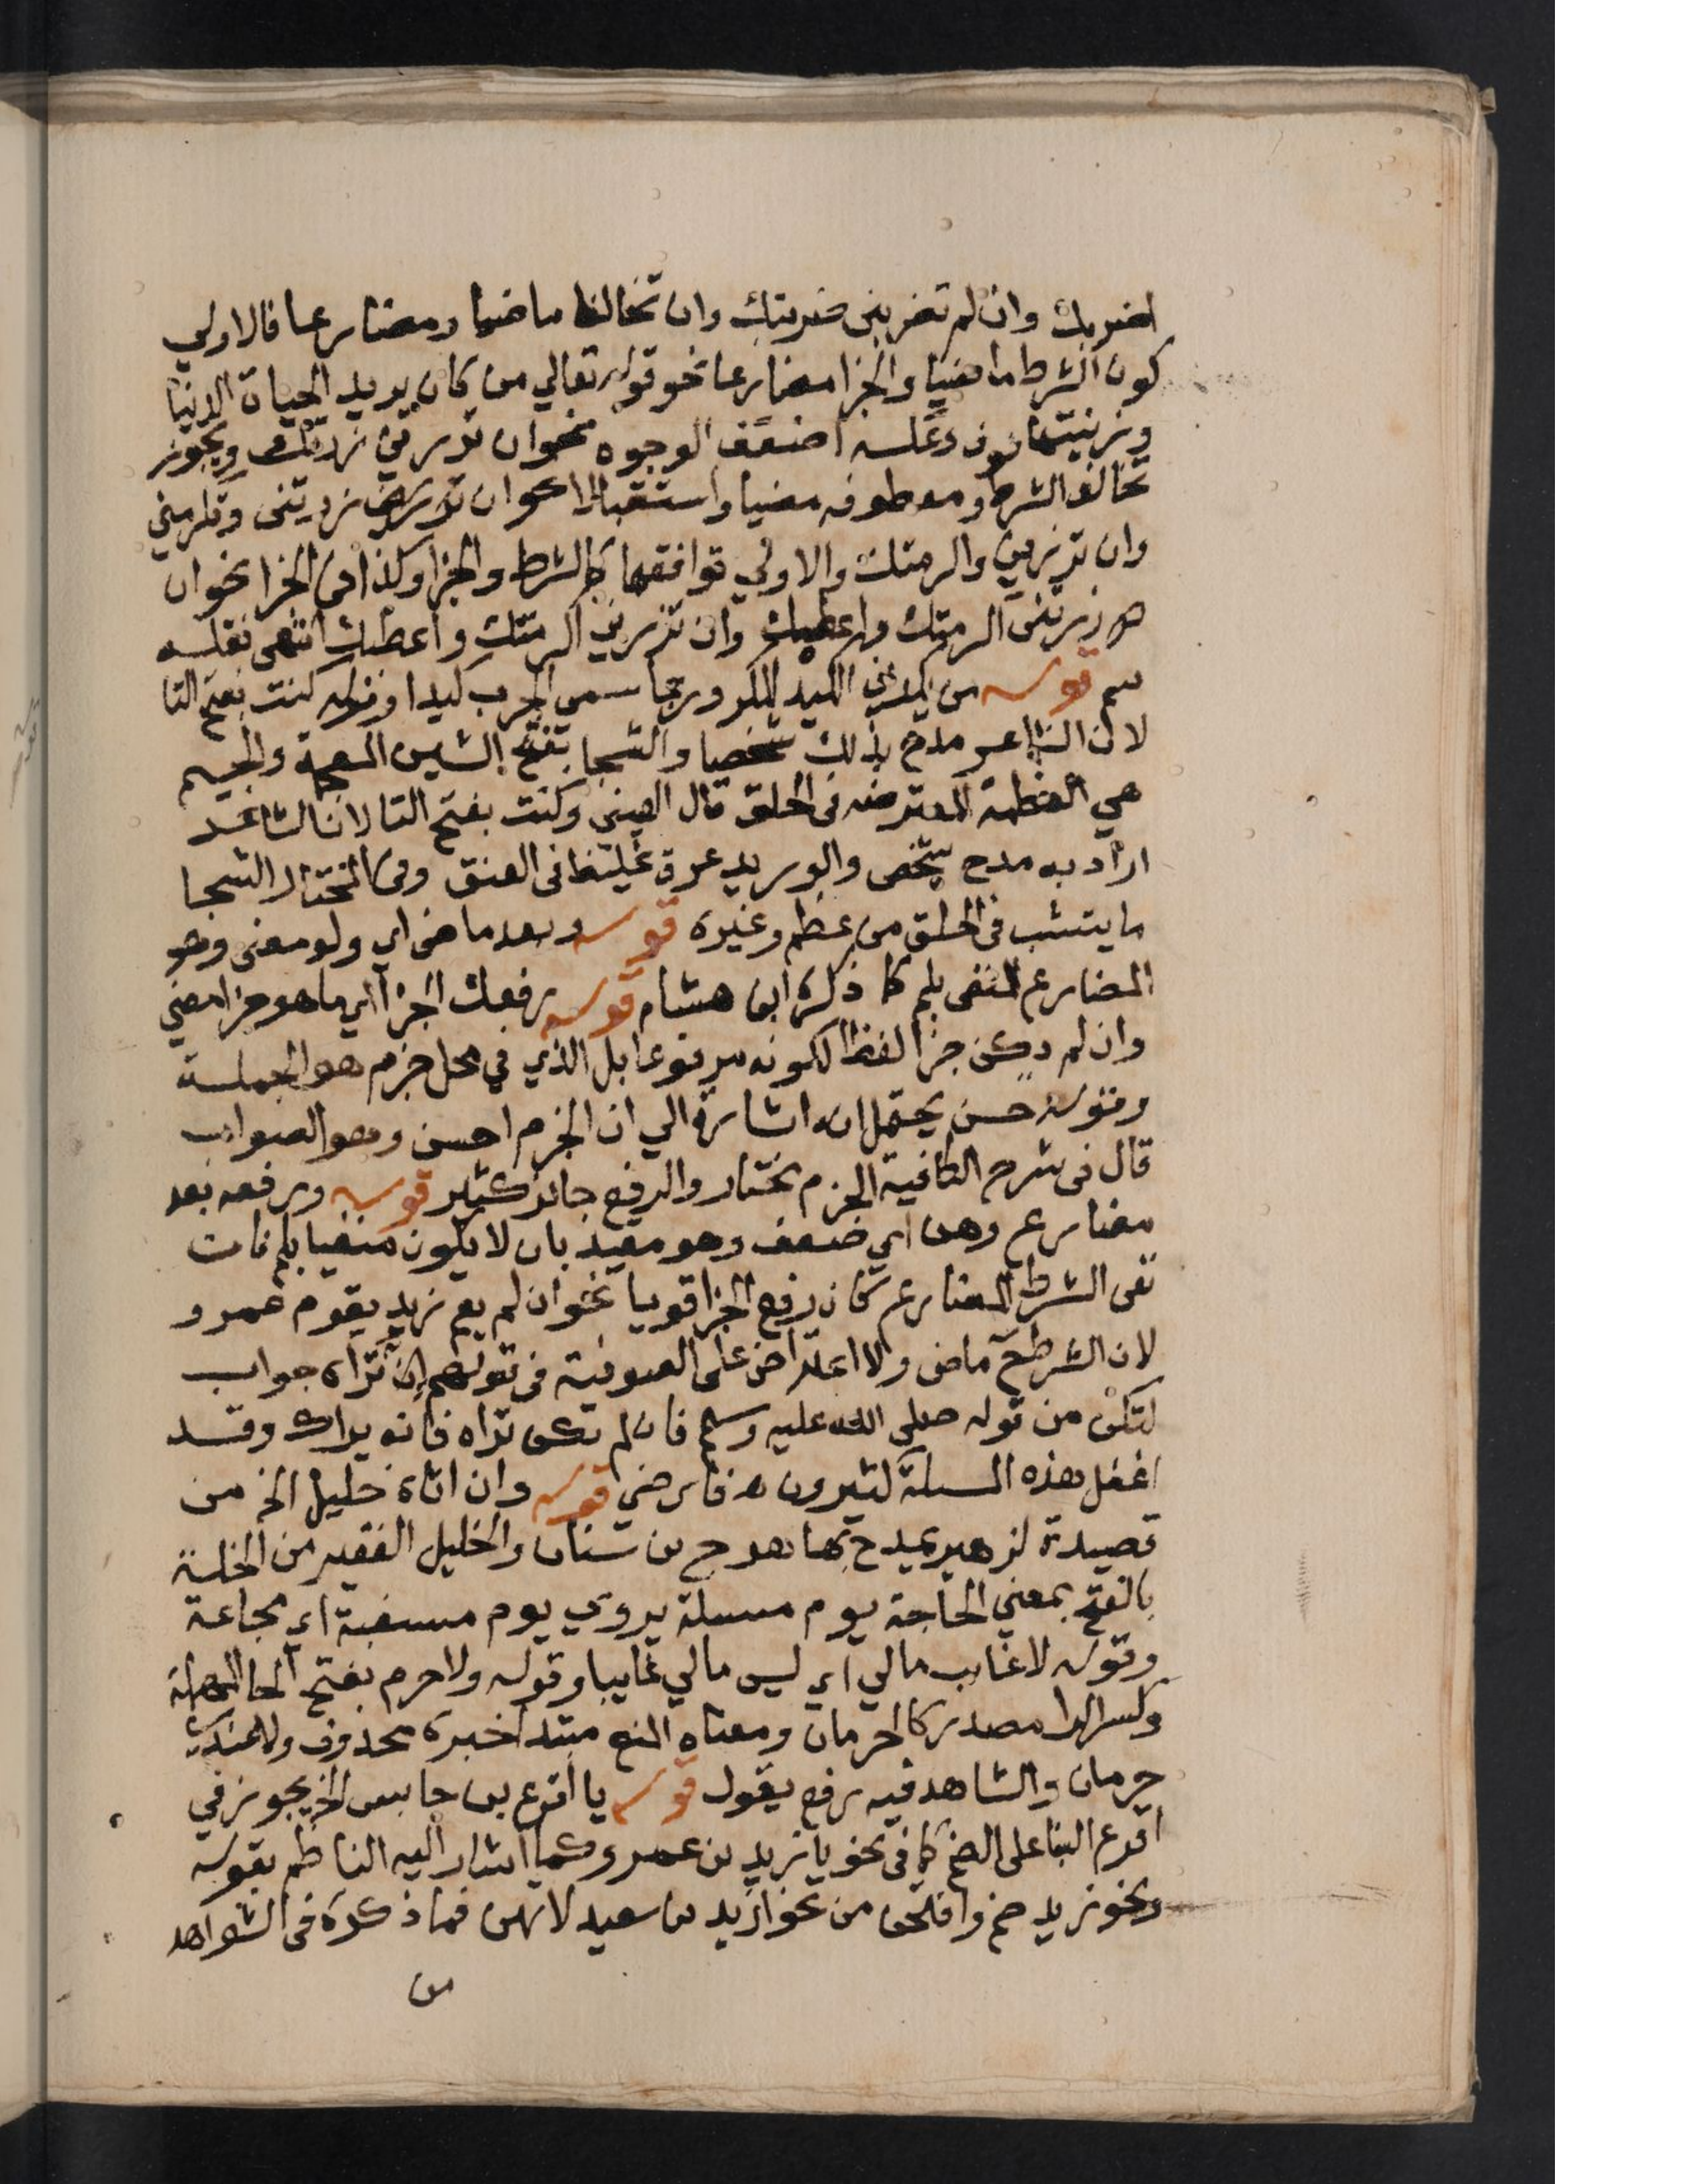 اضربك وان لم تضربنى ضربتك وان تخالفا ماضيا ومضارعا فالاولي
كون الشرط ماضيا والجزا مضارعا نحو قوله تعالي من كان يريد الحياة الدنيا
وزينتها نوف وعكسه اضعف الوجوه نحو ان تزرني زرتك ويجوز
تخالف الشرط ومعطوفه مضيا واستقبالا نحو ان تزرني زرتنى وتكرمني
وان تزرني واكرمتك والاولي توافقهما كالشرط والجزا وكذا في الجزا نحو ان
زرتنى اكرمتك واعطيك وان تزرني اكرمتك واعطيك انتهى نقله
سم قوله من يكدني الكيد المكر وربما سمي الحرب كيدا وقوله كنت بفتح التا
لان الشاعر مدح بذلك شخصا والشجا بفتح الشين المعجمة والجيم
هي العظمة المعترضه فى الحلق قال العينى وكنت بفتح التا لان الشاعر
اراد به مدح شخص والوريد عرق غليظ فى العنق وفى المختار الشجا
ما ينشب فى الحلق من عظم وغيره قوله وبعد ماضى اي ولو معنى وهو
المضارع المنفى بلم كما ذكره ابن هشام قوله رفعك الجزا اي ما هو جزا معنى
وان لم يكن جزا لفظا لكونه مرفوعا بل الذي في محل جزم هو الجملة
وقوله حسن يحتمل انه اشارة الي ان الجزم احسن وهو الصواب
قال فى شرح الكافية الجزم مختار والرفع جائز كثير قوله ورفعه بعد
مضارع وهن اي ضعف وهو مقيد بان لا يكون منفيا بلم فان
نفى الشرط المضارع كان رفع الجزا قويا نحو ان لم يقم زيد يقوم عمرو
لان الشرط ح ماض ولا اعتراض على الصوفية فى قولهم ان تراه جواب
لتكن من قوله صلى الله عليه وسلم فان لم تكن تراه فانه يراك وقد
اغفل هذه المسلة كثيرون فارضي قوله وان اتاه خليل الخ من
قصيدة لزهير يمدح بها هرم بن سنان والخليل الفقير من الخلة
بالفتح بمعني الحاجة يوم مسلة يروى يوم مسغبة اي مجاعة
وقوله لا غايب مالي اي ليس مالي غايبا وقوله ولا حرم بفتح الحا المهملة
وكسر الرا مصدر كالحرمان ومعناه المنع مبتدا خبره محذوف ولا عندك
حرمان والشاهد فيه رفع يقول قوله يا اقرع بن حابس الخ يجوز في
اقرع البنا على الضم كما فى نحو يا زيد بن عمرو كما اشار اليه الناظم بقوله
ونحو زيد ضم وافتحن من نحو ازيد بن سعيد لاتهن فما ذكره فى الشواهد
من